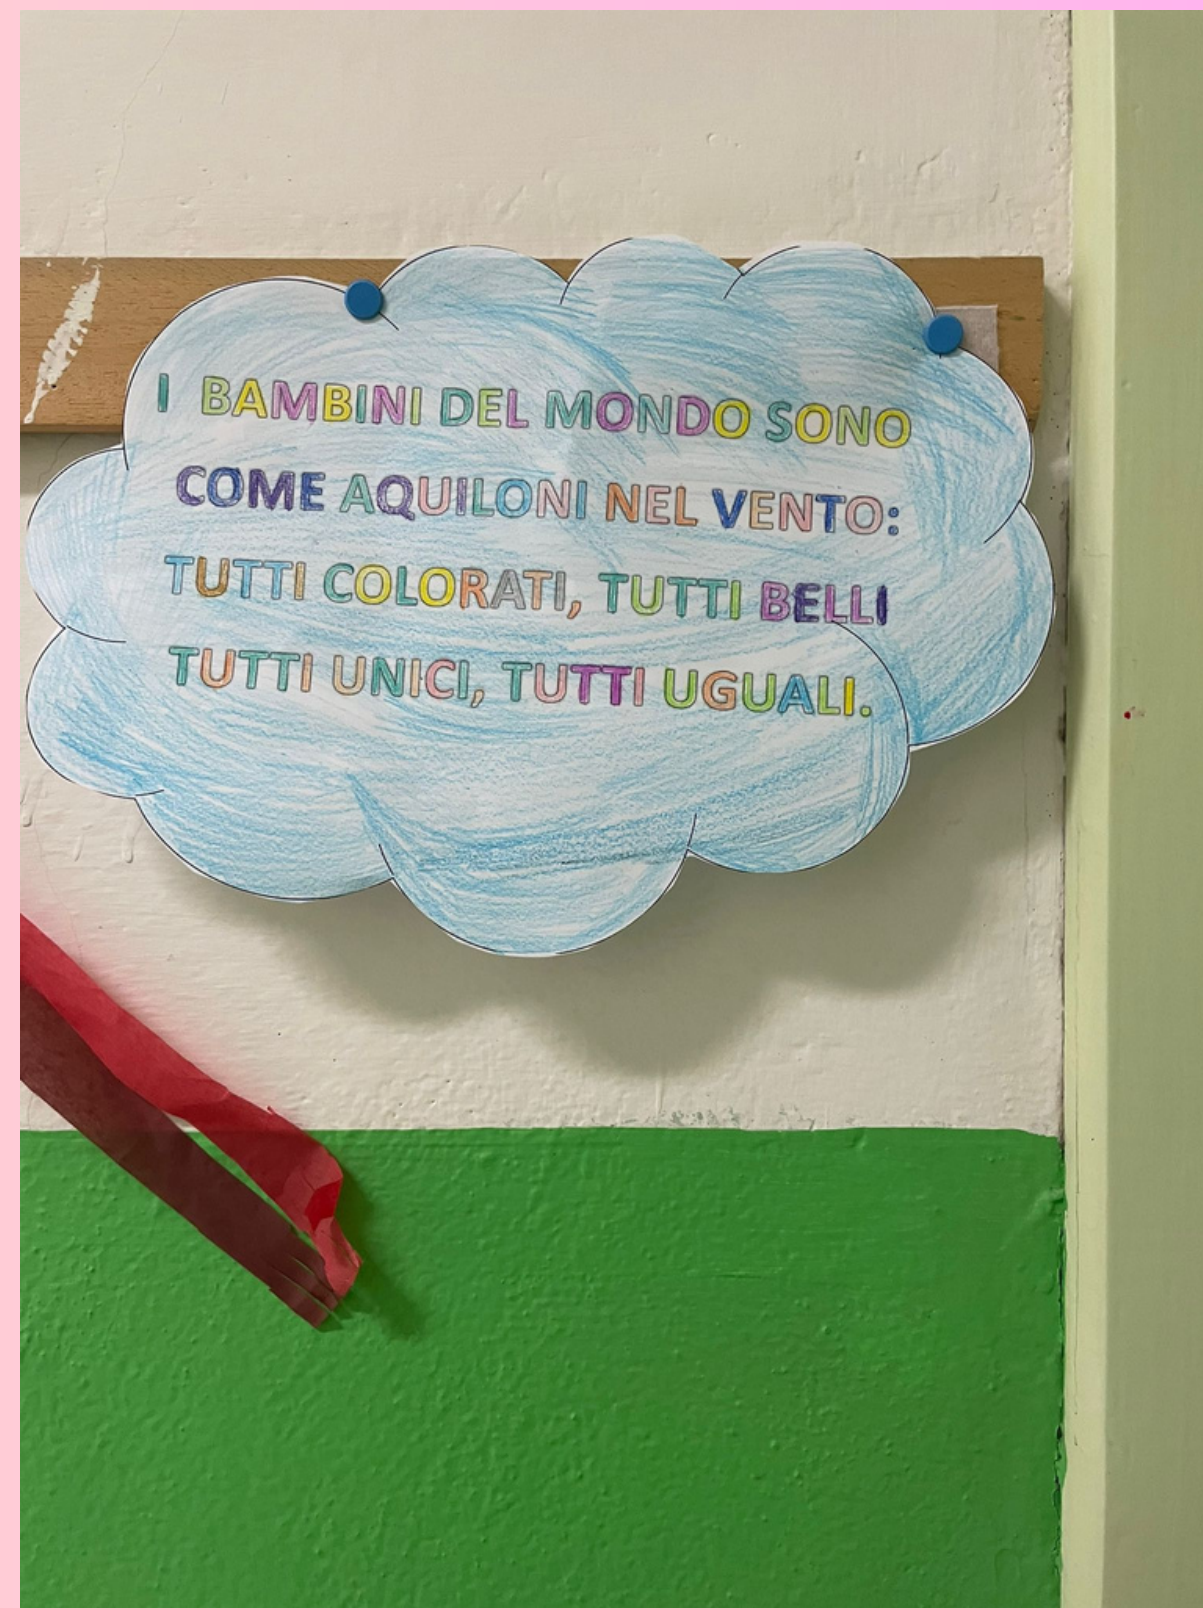 I BAMBINI DEL MONDO SONO
COME AQUILONI NEL VENTO:
TUTTI COLORATI, TUTTI BELLI
TUTTI UNICI, TUTTI UGUALI.